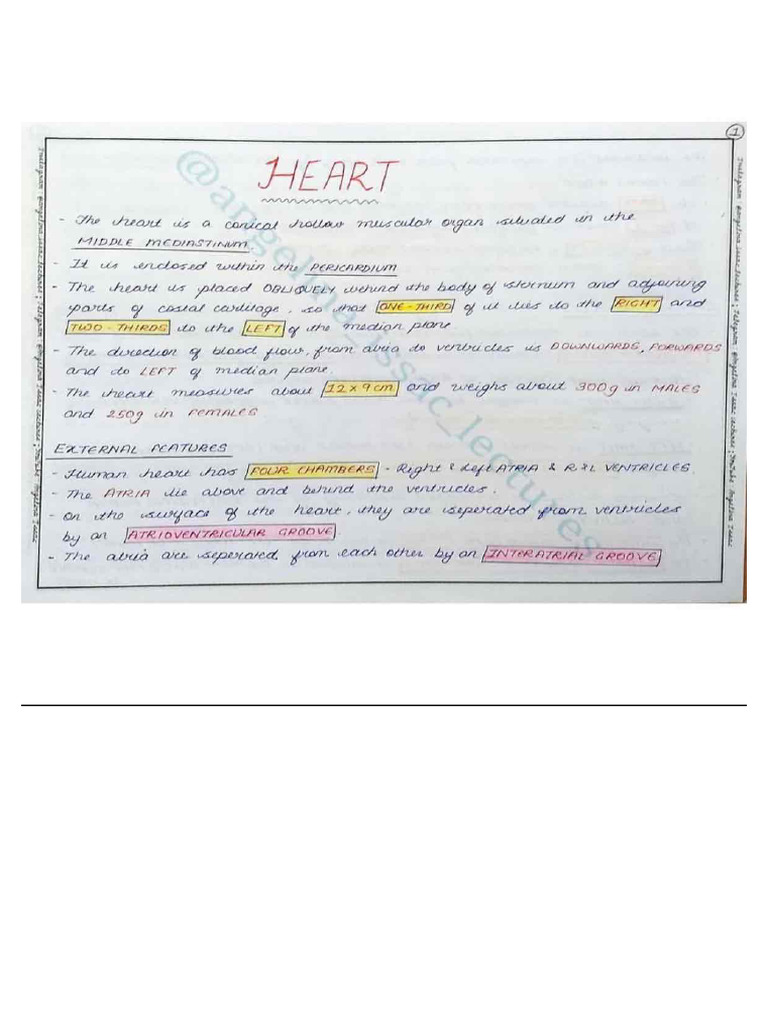 1
HEART
- The heart is a conical hollow muscular organ situated in the
MIDDLE MEDIASTINUM.
- It is enclosed within the PERICARDIUM
- The heart is placed OBLIQUELY behind the body of sternum and adjoining
parts of costal cartilage, so that ONE-THIRD of it lies to the RIGHT and
TWO-THIRDS to the LEFT of the median plane
- The direction of blood flow, from atria to ventricles is DOWNWARDS, FORWARDS
and to LEFT of median plane.
- The heart measures about 12 x 9 cm and weighs about 300g in MALES
and 250g in FEMALES
EXTERNAL FEATURES
- Human heart has FOUR CHAMBERS - Right & Left ATRIA & R & L VENTRICLES.
- The ATRIA lie above and behind the ventricles.
- On the surface of the heart, they are seperated from ventricles
by an ATRIOVENTRICULAR GROOVE
- The atria are seperated from each other by an INTERATRIAL GROOVE
@angelina_issac_lectures
Instagram : @angelina_issac_lectures ; Telegram : @Angelina Issac lectures ; YouTube : Angelina Issac
Instagram : @angelina_issac_lectures ; Telegram : @Angelina Issac lectures ; YouTube : Angelina Issac